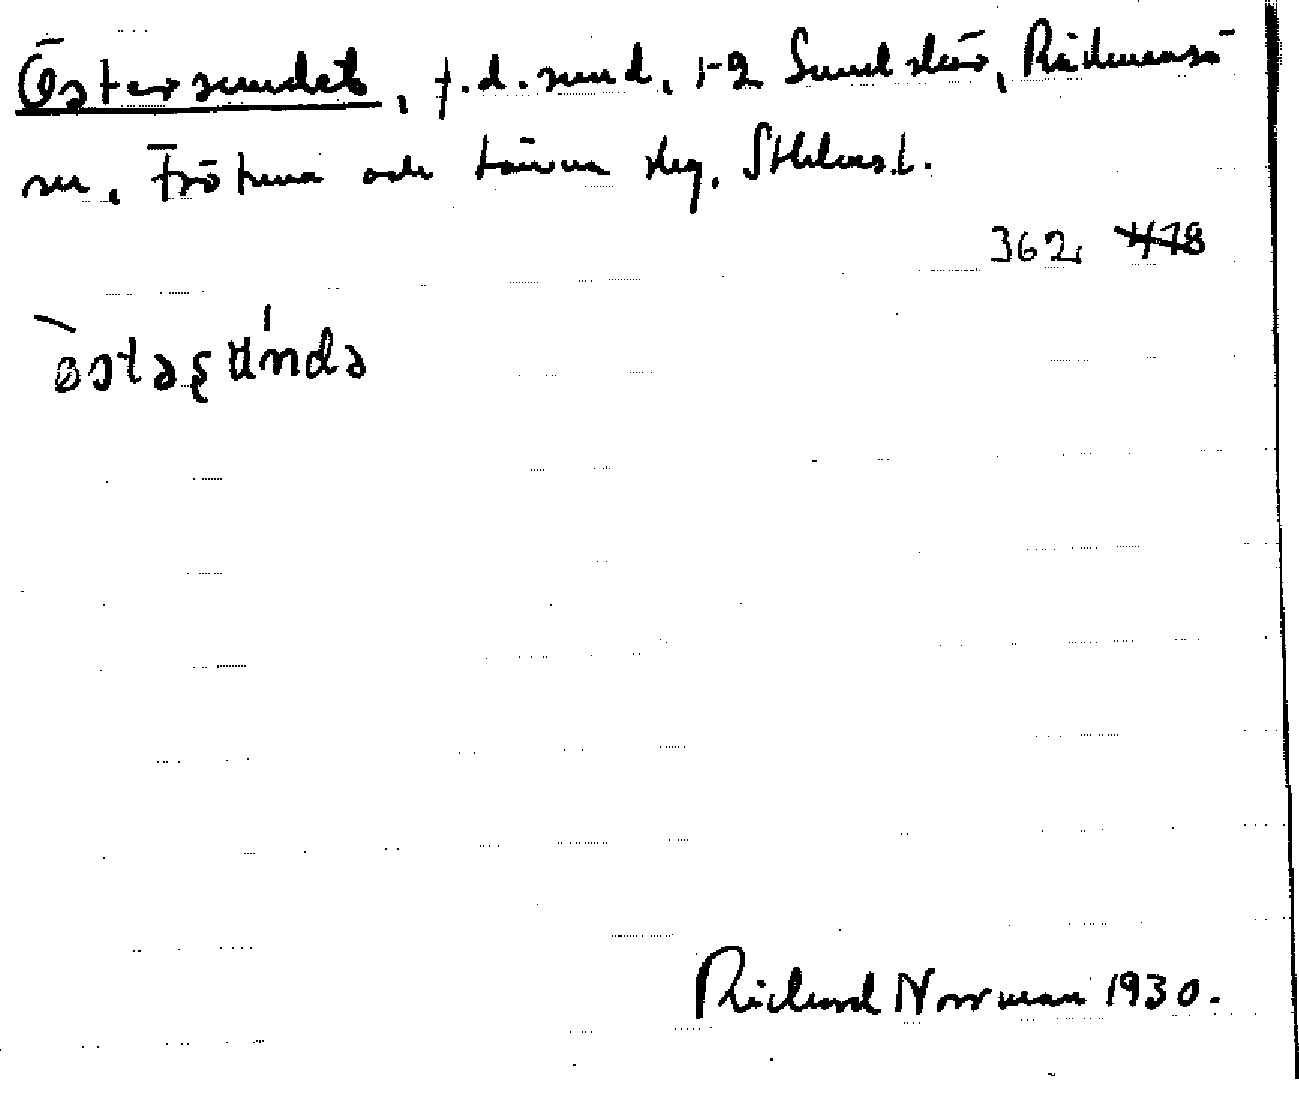 Östersundet, f.d. sund, 1-2 Sundskär, Rådmansö
sn, Frötuna och Länna skg, Sthlms l.
362, 478
òstəʂɯ́ndə
Richard Norrman 1930.